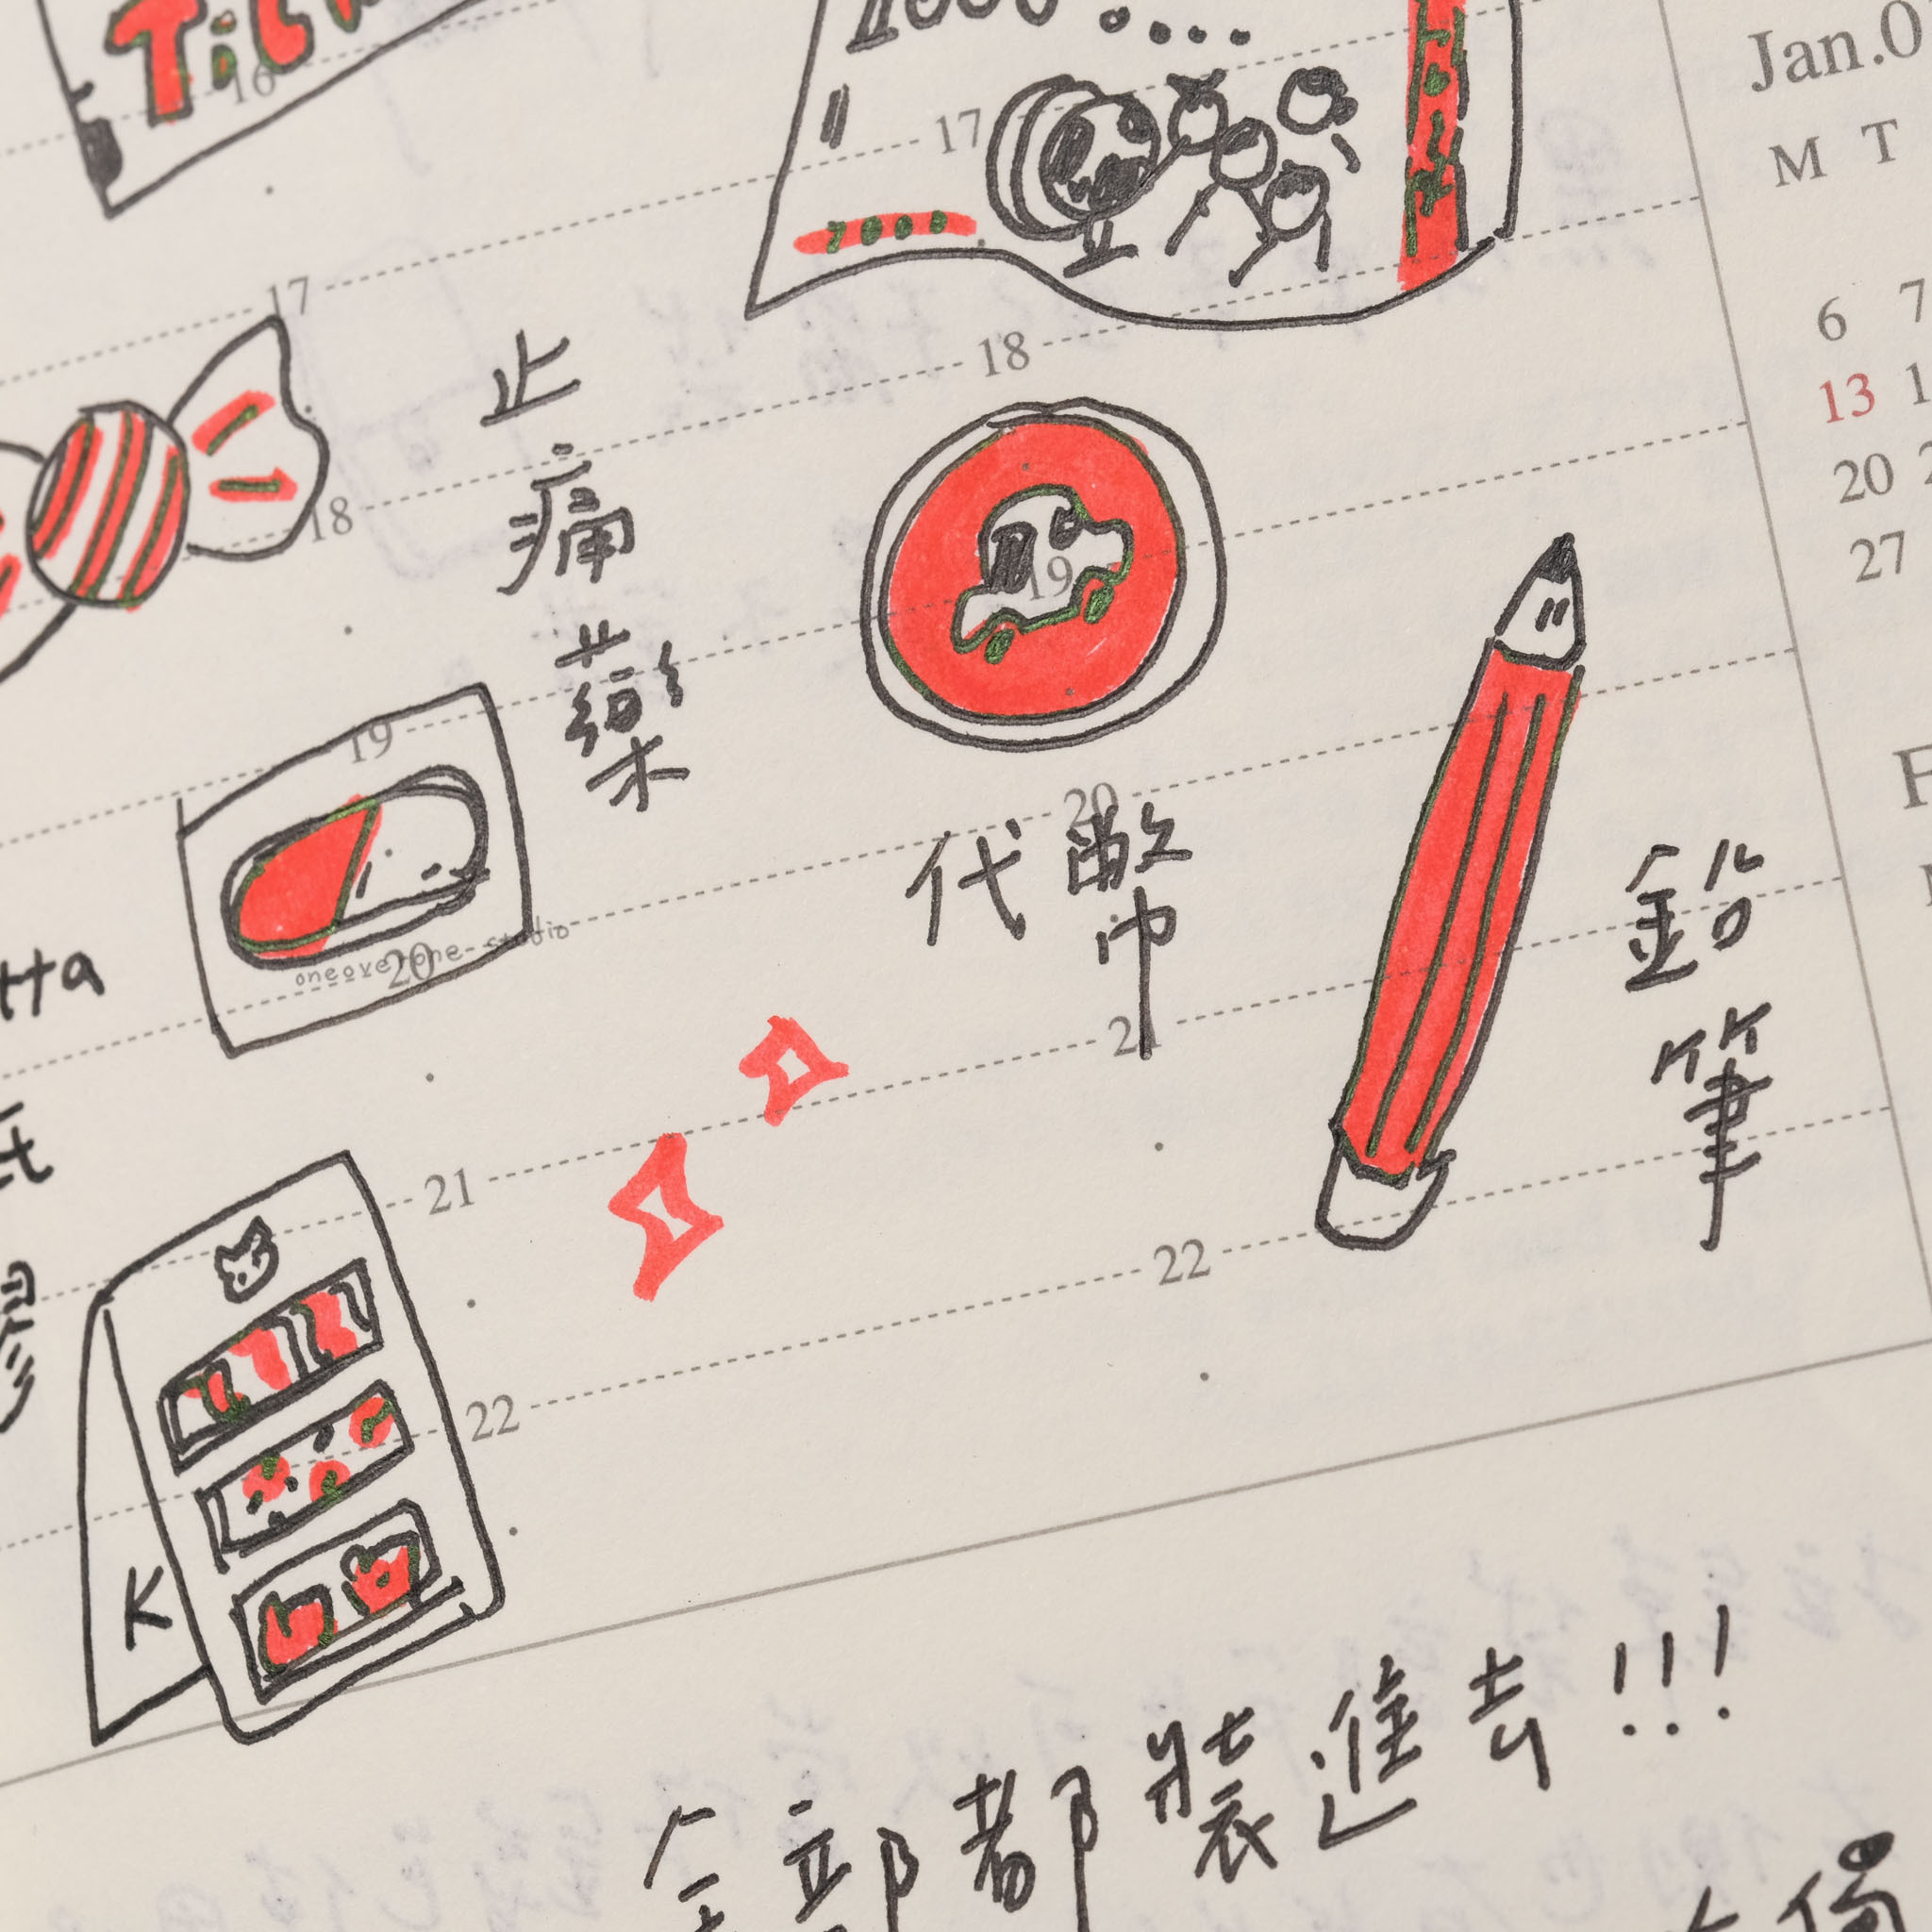 16
17
18
19
20
21
22
17
18
19
20
21
22
止痛藥
oneoverone studio
K
1000
代幣
鉛筆
全部都裝進去!!!
Jan.0
M T
6 7
13 1
20 2
27